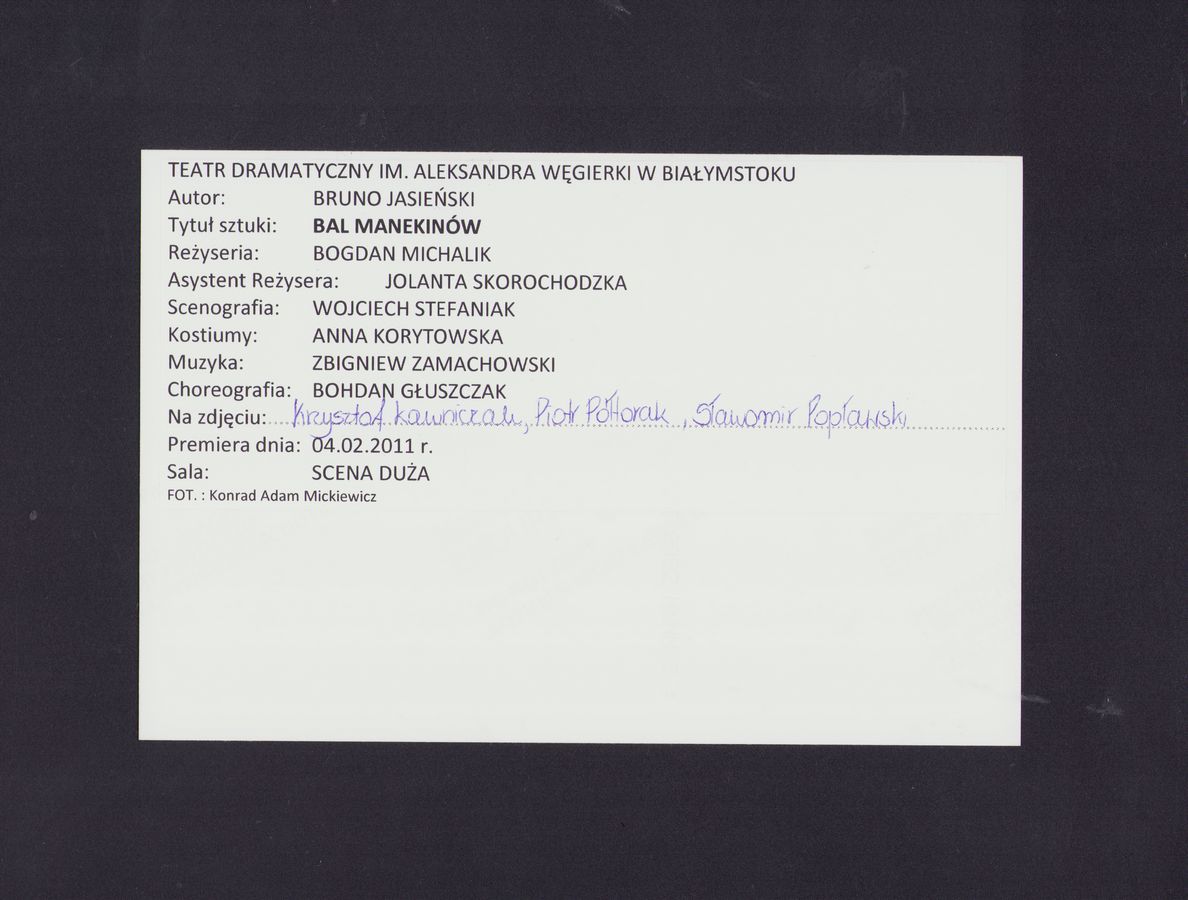 TEATR DRAMATYCZNY IM. ALEKSANDRA WĘGIERKI W BIAŁYMSTOKU
Autor: BRUNO JASIEŃSKI
Tytuł sztuki: BAL MANEKINÓW
Reżyseria: BOGDAN MICHALIK
Asystent Reżysera: JOLANTA SKOROCHODZKA
Scenografia: WOJCIECH STEFANIAK
Kostiumy: ANNA KORYTOWSKA
Muzyka: ZBIGNIEW ZAMACHOWSKI
Choreografia: BOHDAN GŁUSZCZAK
Na zdjęciu: Krzysztof Ławniczak, Piotr Półtorak, Sławomir Popławski
Premiera dnia: 04.02.2011 r.
Sala: SCENA DUŻA
FOT. : Konrad Adam Mickiewicz